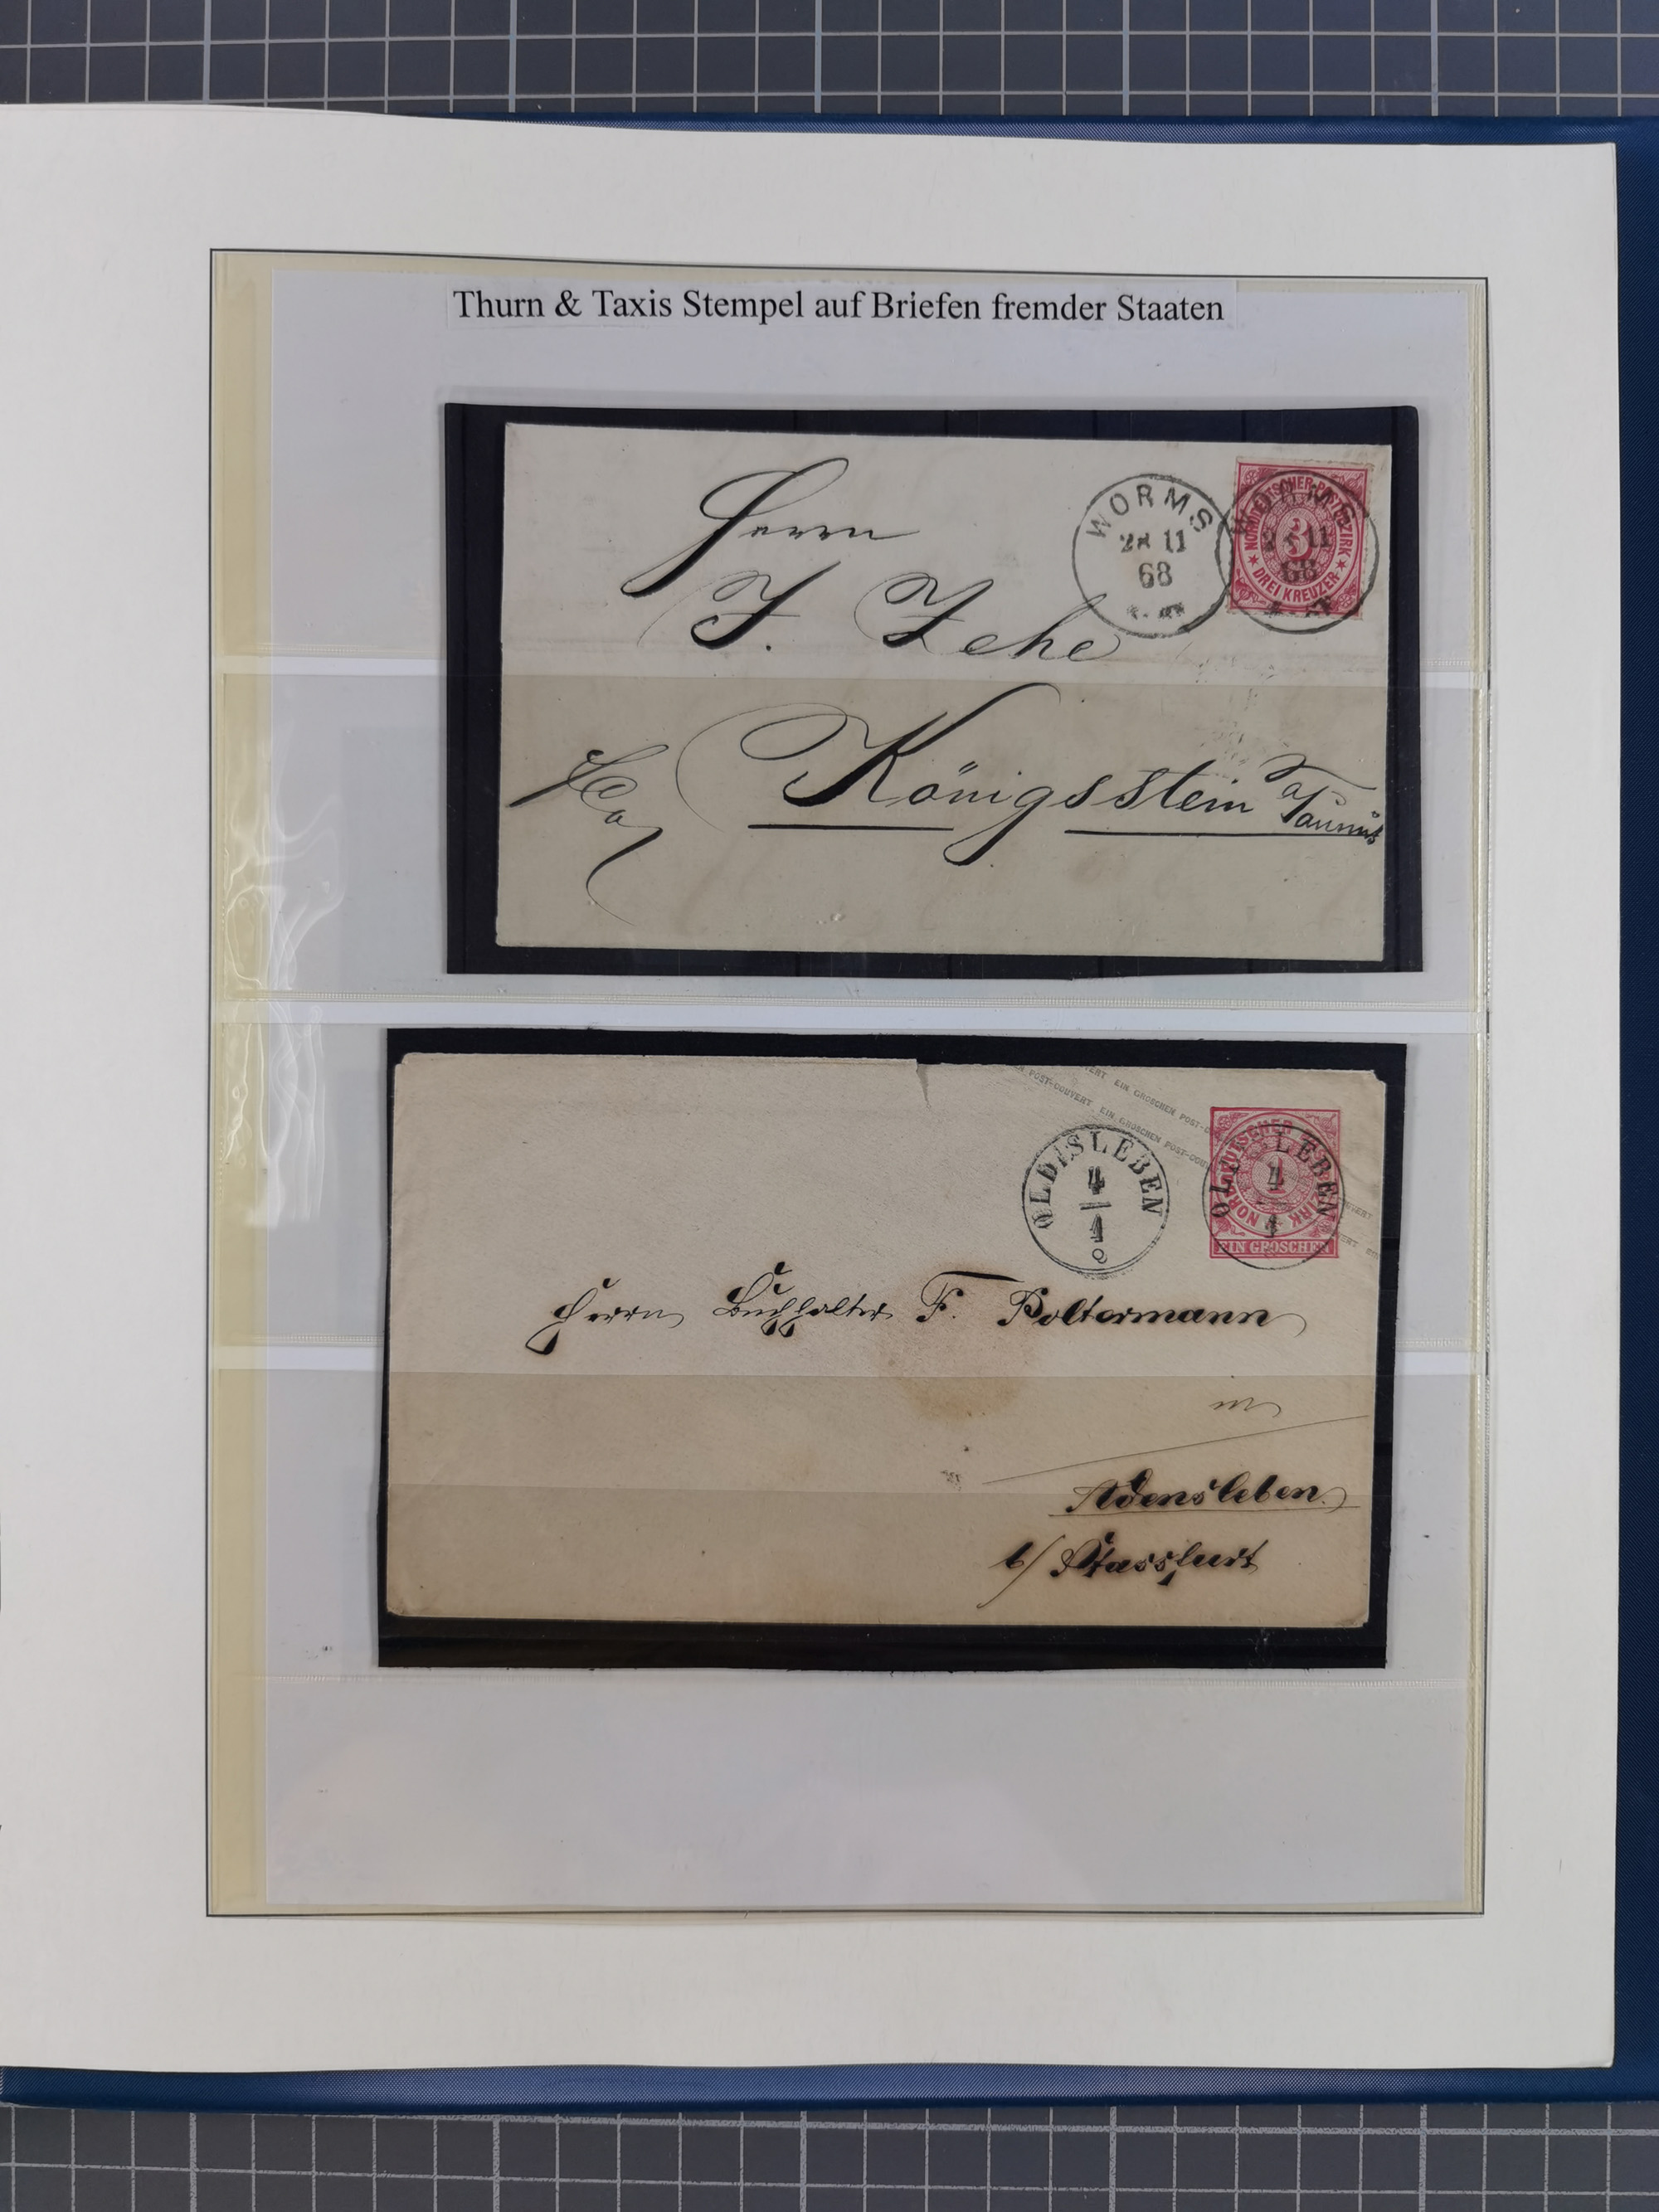 Thurn & Taxis Stempel auf Briefen fremder Staaten
WORMS
11
68
WORMS
11
68
NORDDEUTSCHER POSTBEZIRK
3
DREI KREUZER
Herrn
J. Zehe
Königsstein a/Taunus
EIN GROSCHEN POST-COUVERT
POST-COUVERT EIN GROSCHEN POST-COUVERT
OLDISLEBEN
4
1
OLDISLEBEN
4
1
NORDDEUTSCHER
1
EIN GROSCHEN
Herrn Buchhalter F. Poltermann
in
Adensleben
b/ Stassfurt